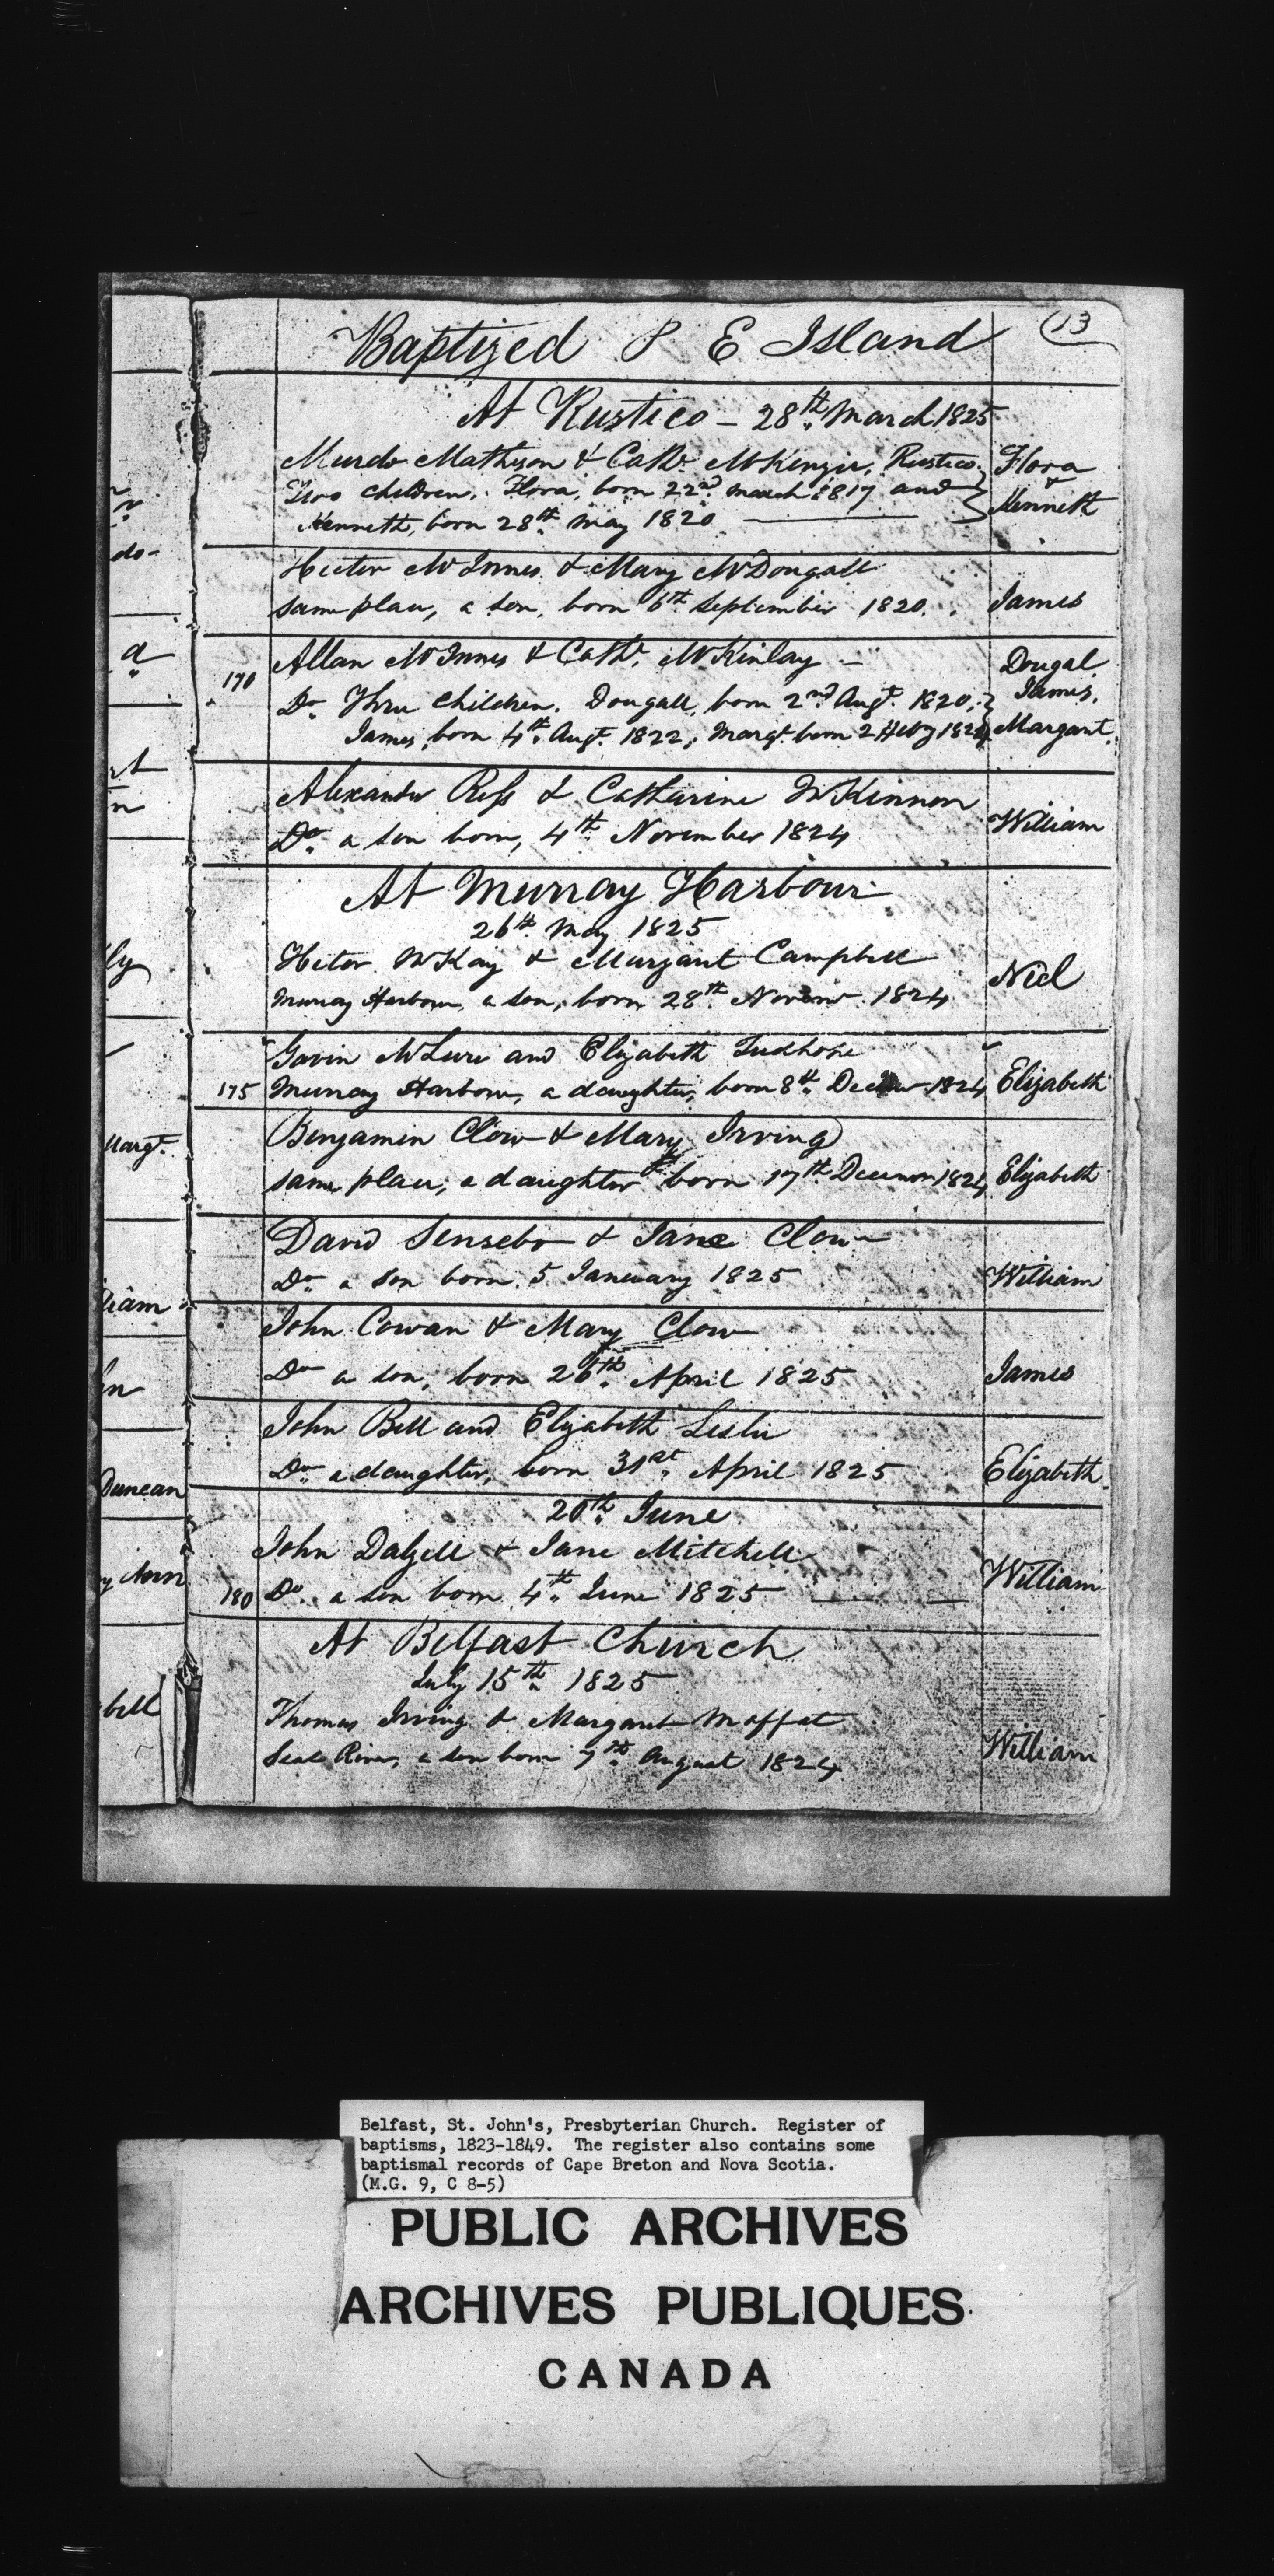 13
Baptized P E Island
At Rustico - 28th March 1825
Murdo Mathison & Cath. McKenzie, Rustico.
Two children. Flora, born 22nd march 1817 and
Kenneth, born 28th May 1820
Flora
&
Kenneth
Hector McInnes & Mary McDougall
same place, a son, born 6th September 1820.
James
Allan McInnes & Cath. McKinlay -
170
Do Three children. Dougall, born 2nd Augt. 1820,
James, born 4th Augt. 1822, Margt. born 1824
Dougal.
James.
Margaret.
Alexander Ross & Catharine McKinnon
Do a son born, 4th November 1824
William
At Murray Harbour
26th May 1825
Hector McKay & Margaret Campbell
Murray Harbour, a son, born 28th 1824
Neil
Gavin and Elizabeth Tudhope
175 Murray Harbour, a daughter, born 8th 1824
Elizabeth
Benjamin Clow & Mary Irving
same place, a daughter born 17th 1824
Elizabeth
David Sensebo & Jane Clow
Do a son born 5 January 1825
William
John Cowan & Mary Clow
Do a son, born 26th April 1825
James
John Bell and Elizabeth Leslie
Do a daughter, born 31st April 1825
Elizabeth
20th June
John Dalzell & Jane Mitchell
180 Do a son born 4th June 1825
William
At Belfast Church
July 15th 1825
Thomas Irving & Margaret Moffat
Seal River, a son born 7th August 1824
William
do-
a
ly
Margt.
liam
n
Duncan
y Ann
bell
Belfast, St. John's, Presbyterian Church. Register of
baptisms, 1823-1849. The register also contains some
baptismal records of Cape Breton and Nova Scotia.
(M.G. 9, C 8-5)
PUBLIC ARCHIVES
ARCHIVES PUBLIQUES
CANADA